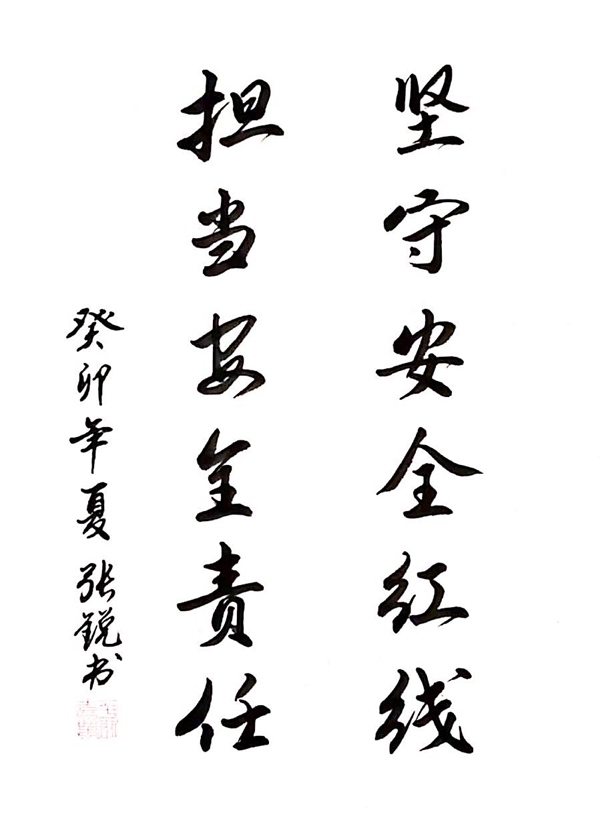 坚守安全红线
担当安全责任
癸卯年夏张锐书